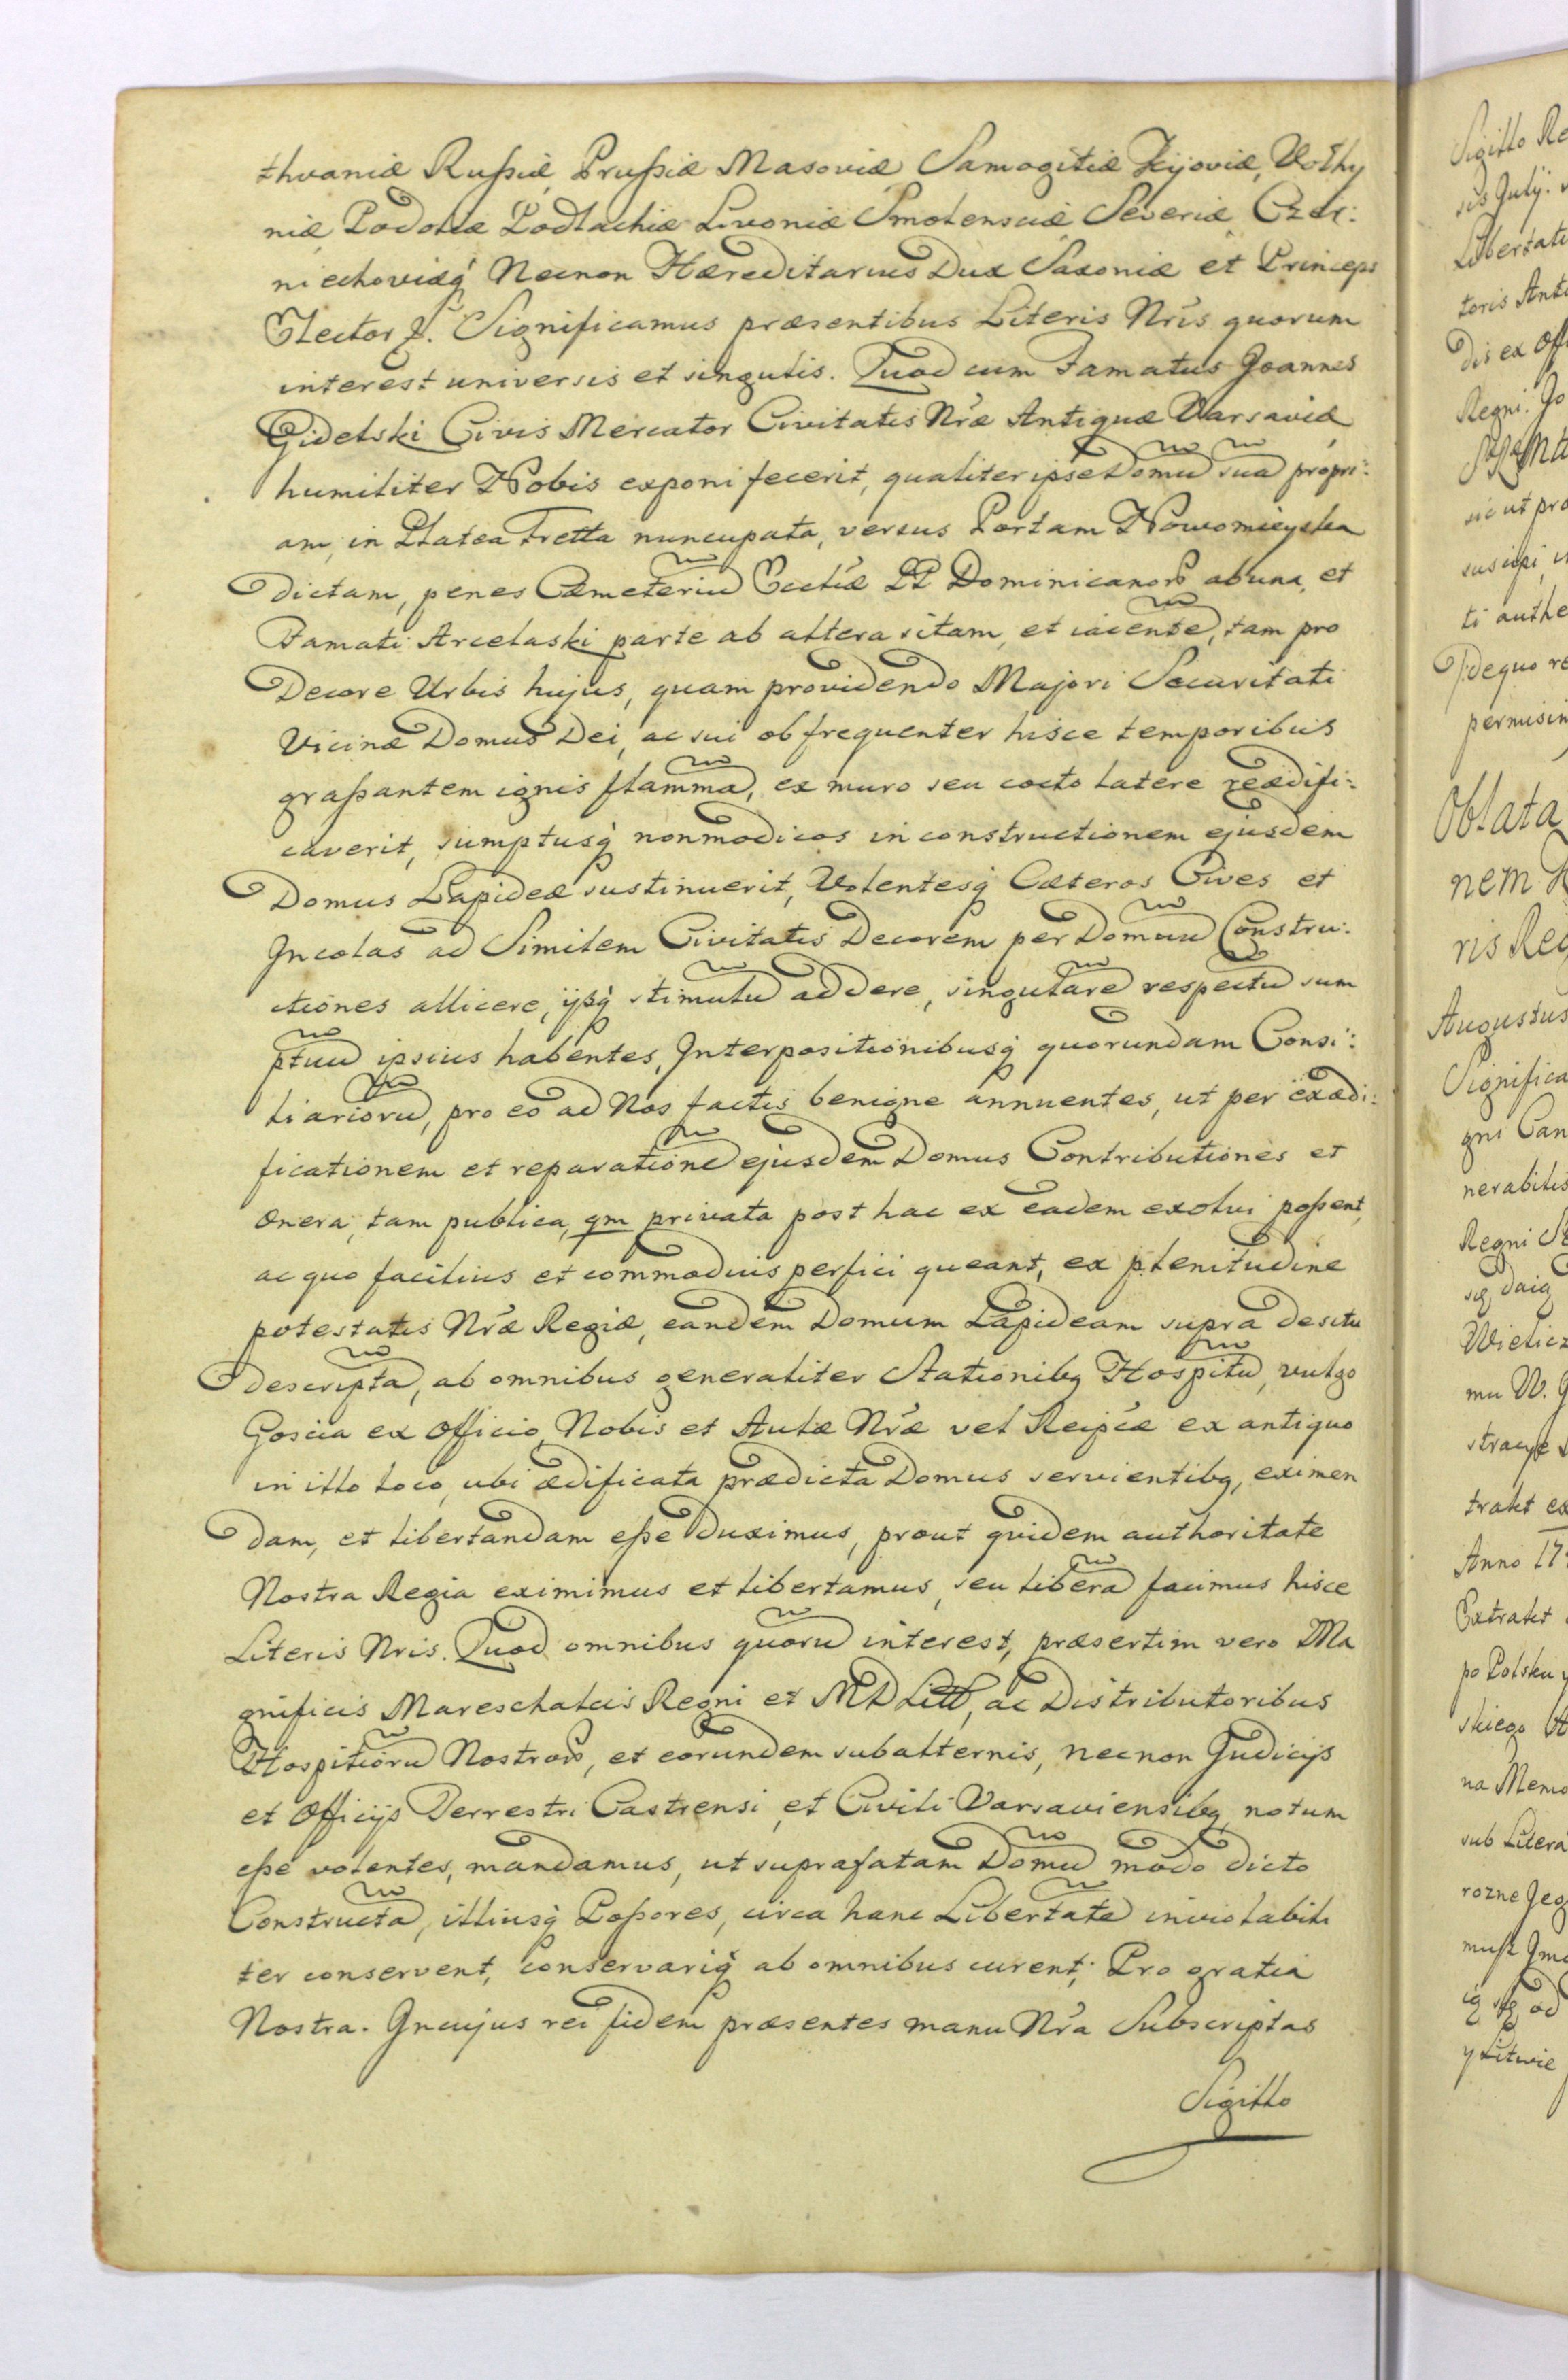 thvaniæ Rußiæ Prußiæ Masoviæ Samogitiæ Kijoviæ, Vołhy
niæ Podoliæ Podlachiæ Livoniæ Smolensciæ Severiæ Czer:
niechoviæq́ Necnon Hæreditarius Dux Saxoniæ et Princeps
Elector &. Significamus præsentibus Literis Nr̃is quorum
interest universis et singulis. Quod cum Famatus Joannes
Gidelski Civis Mercator Civitatis Nr̃æ Antiquæ Varsaviæ
humiliter Nobis exponi fecerit, qualiter ipse Domũ suã propri:
am, in Platea Fretta nuncupata, versus Portam Nowomieyska
dictam, penes Cæmeteriũ Eccliæ PP Dominicanorũ ab una, et
Famati Arcelaski parte ab altera sitam, et iacentẽ, tam pro
Decore Urbis hujus, quam providendo Majori Securitati
Vicinæ Domus Dei, ac sui ob frequenter hisce temporibus
graßantem ignis flammã, ex muro seu cocto latere reædifi:
caverit, sumptusq́ non modicos in constructionem ejusdem
Domus Lapideæ sustinuerit, Volentesq́ Cæteros Cives et
Incolas ad Similem Civitatis Decorem per Domuũ Constru:
ctiones allicere, ijsq́ stimulũ addere, singularẽ respectũ sum
ptuũ ipsius habentes, Interpositionibusq́ quorundam Consi:
liariorũ, pro eo ad Nos factis benigne annuentes, ut per exædi:
ficationem et reparationẽ ejusdem Domus Contributiones et
Onera, tam publica, qm privata post hac ex eadem exolvi poßent,
ac quo facilius et commodius perfici queant, ex plenitudine
potestatis Nr̃æ Regiæ, eandem Domum Lapideam supra de situ
descriptã, ab omnibus generaliter Stationibq Hospitũ, vulgo
Goscia ex Officio, Nobis et Aulæ Nr̃æ vel Reipcæ ex antiquo
in illo loco, ubi ædificata prædicta Domus servientibq, eximen
dam, et libertandam eße duximus, prout quidem authoritate
Nostra Regia eximimus et libertamus, seu liberã facimus hisce
Literis Nris. Quod omnibus quorũ interest, præsertim vero Ma
gnificis Mareschalcis Regni et M D Litt, ac Distributoribus
Hospitiorũ Nostrorũ, et eorundem subalternis, necnon Judicijs
et Officijs Terrestri Castrensi, et Civili Varsaviensibq notum
eße volentes, mandamus, ut suprafatam Domũ modo dicto
Constructã, illiusq́ Poßores, circa hanc Libertatẽ inviolabili
ter conservent, conservariq́ ab omnibus curent; Pro gratia
Nostra. In cujus rei fidem præsentes manu Nr̃a Subscriptas
Sigillo